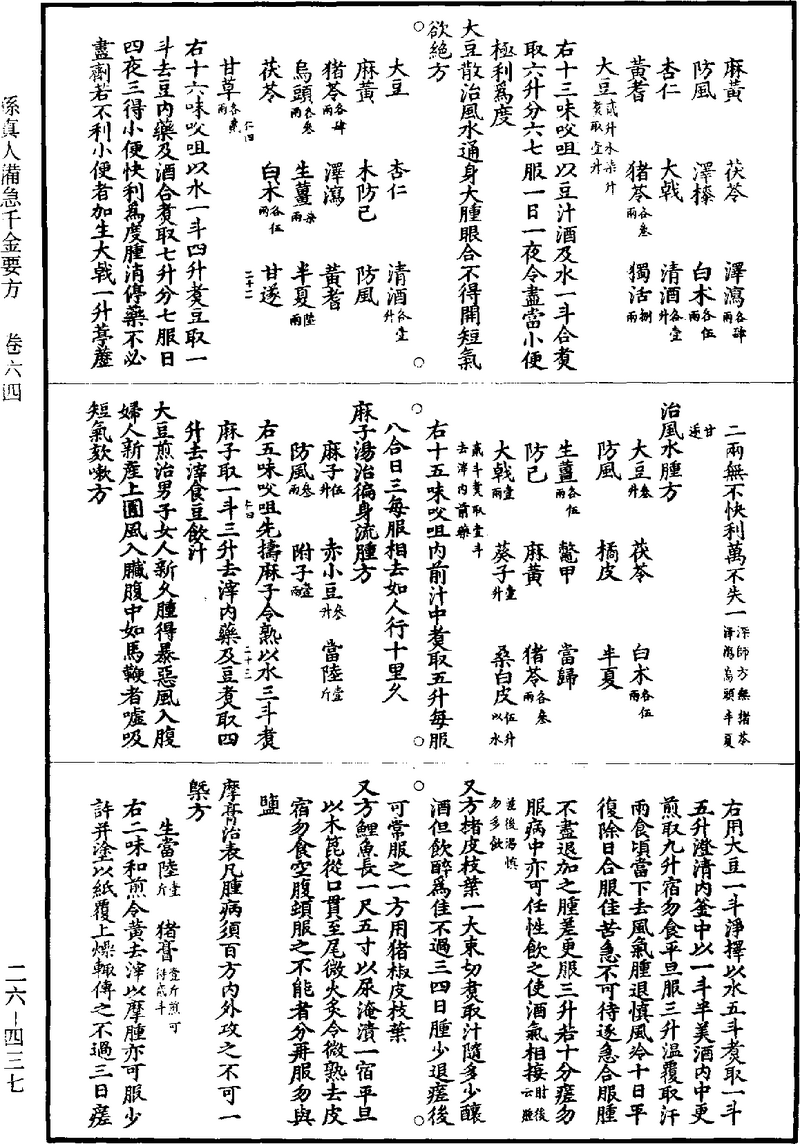 麻黄　茯苓　澤瀉各肆兩
防風　澤㯶　白术各伍兩
杏仁　大戟　清酒各壹升
黃耆　猪苓各叁兩　獨活捌兩
大豆貳升水柒升煑取壹升
右十三味㕮咀以豆汁酒及水一斗合煑
取六升分六七服一日一夜令盡當小便
極利爲度
大豆散治風水通身大腫眼合不得開短氣
欲絕方
大豆　杏仁　清酒各壹升
麻黃　木防己　防風
猪苓各肆兩　澤瀉　黃耆
烏頭各叁兩　生薑柒兩　半夏陸兩
茯苓　白术各伍兩　甘遂
甘草各貳兩　仁四　二十二
右十六味㕮咀以水一斗四升煑豆取一
斗去豆內藥及酒合煑取七升分七服日
四夜三得小便快利爲度腫消停藥不必
盡劑若不利小便者加生大戟一升葶藶
二兩無不快利萬不失一深師方無猪苓澤瀉烏頭半夏甘遂
治風水腫方
大豆叁升　茯苓　白术各伍兩
防風　橘皮　半夏
生薑各伍兩　鼈甲　當歸
防己　麻黃　猪苓各叁兩
大戟壹兩　葵子壹升　桑白皮伍升以水貳斗煑取壹斗去滓內前藥
右十五味㕮咀內前汁中煑取五升每服
八合日三每服相去如人行十里久
麻子湯治徧身流腫方
麻子伍升　赤小豆叁升　當陸壹斤
防風叁兩　附子壹兩
右五味㕮咀先擣麻子令熟以水三斗煑
麻子取一斗三升去滓內藥及豆煑取四
升去滓食豆飲汁
大豆煎治男子女人新久腫得暴惡風入腹
婦人新產上圊風入臟腹中如馬鞭者噓吸
短氣欬嗽方
右用大豆一斗淨擇以水五斗煑取一斗
五升澄清內釜中以一斗半美酒內中更
煎取九升宿勿食平旦服三升溫覆取汗
兩食頃當下去風氣腫退慎風冷十日平
復除日合服佳苦急不可待逐急合服腫
不盡退加之腫差更服三升若十分瘥勿
服病中亦可任性飲之使酒氣相接肘後云腫差後渴慎勿多飲
又方楮皮枝葉一大束切煑取汁隨多少釀
酒但飲醉爲佳不過三四日腫少退瘥後
可常服之一方用猪椒皮枝葉
又方鯉魚長一尺五寸以尿淹漬一宿平旦
以木箆從口貫至尾微火炙令微熟去皮
宿勿食空腹頓服之不能者分再服勿與
鹽
摩膏治表凡腫病須百方內外攻之不可一
槩方
生當陸壹斤　猪膏壹斤煎可得貳斗
右二味和煎令黃去滓以摩腫亦可服少
許并塗以紙覆上燥輒傅之不過三日瘥
孫真人備急千金要方　卷六四
二六－四三七